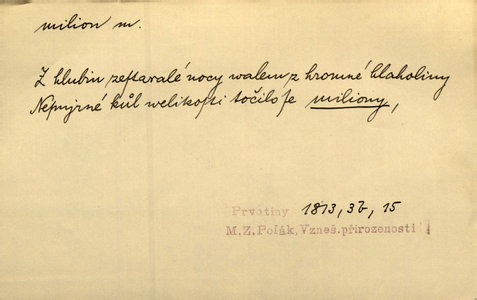 milion m.
Z hlubin zeſtaralé nocy walem z hromné hlaholiny
Neſmjrné kůl welikoſti točilo ſe miliony,
Prvotiny 1813, 3b, 15
M.Z.Polák, Vzneš.přirozenosti